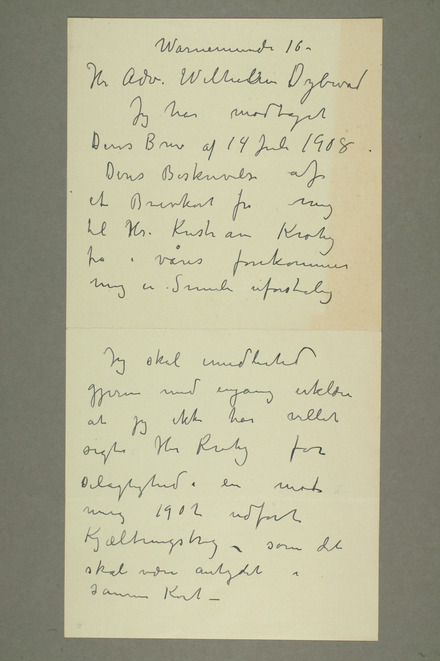 Warnemünde 16 –
Hr Adv. Wilhelm Dybwad
Jeg har modtaget
Deres Brev af 14 Juli 1908.
Deres Beskrivelse af
et Brevkort fra mig
til Hr. Kristian Krohg
fra i våres forekommer
mig en Smule uforståelig
Jeg skal imidlertid
gjerne med engang erklære
at jeg ikke har villet
sigte Hr Krohg for
Delagtighed i en mod
mig 1902 udført
Kjæltringstreg – som det
skal være antydet i
samme Kort –